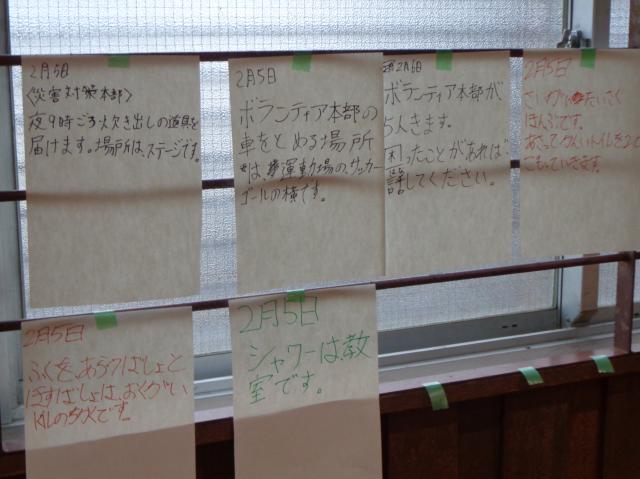 2月5日
〈災害対策本部〉
夜9時ごろ火欠き出しの道具を
届けます。場所は、ステージです。
2月5日
ボランティア本部の
車をとめる場所
は、運動場の、サッカー
ゴールの横です。
2月6日
ボランティア本部が
5人きます。
困ったことがあれば
話してください。
2月5日
さいがいたいさく
ほんぶです。
あさって
トイレを
もっていきます。
2月5日
ふくを、あらうばしょと
ほすばしょは、おくがい
の
です。
2月5日
シャワーは、教
室です。